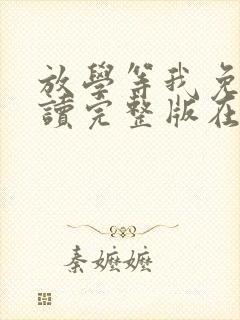 放學等我免
讀完整版在
秦嬤嬤